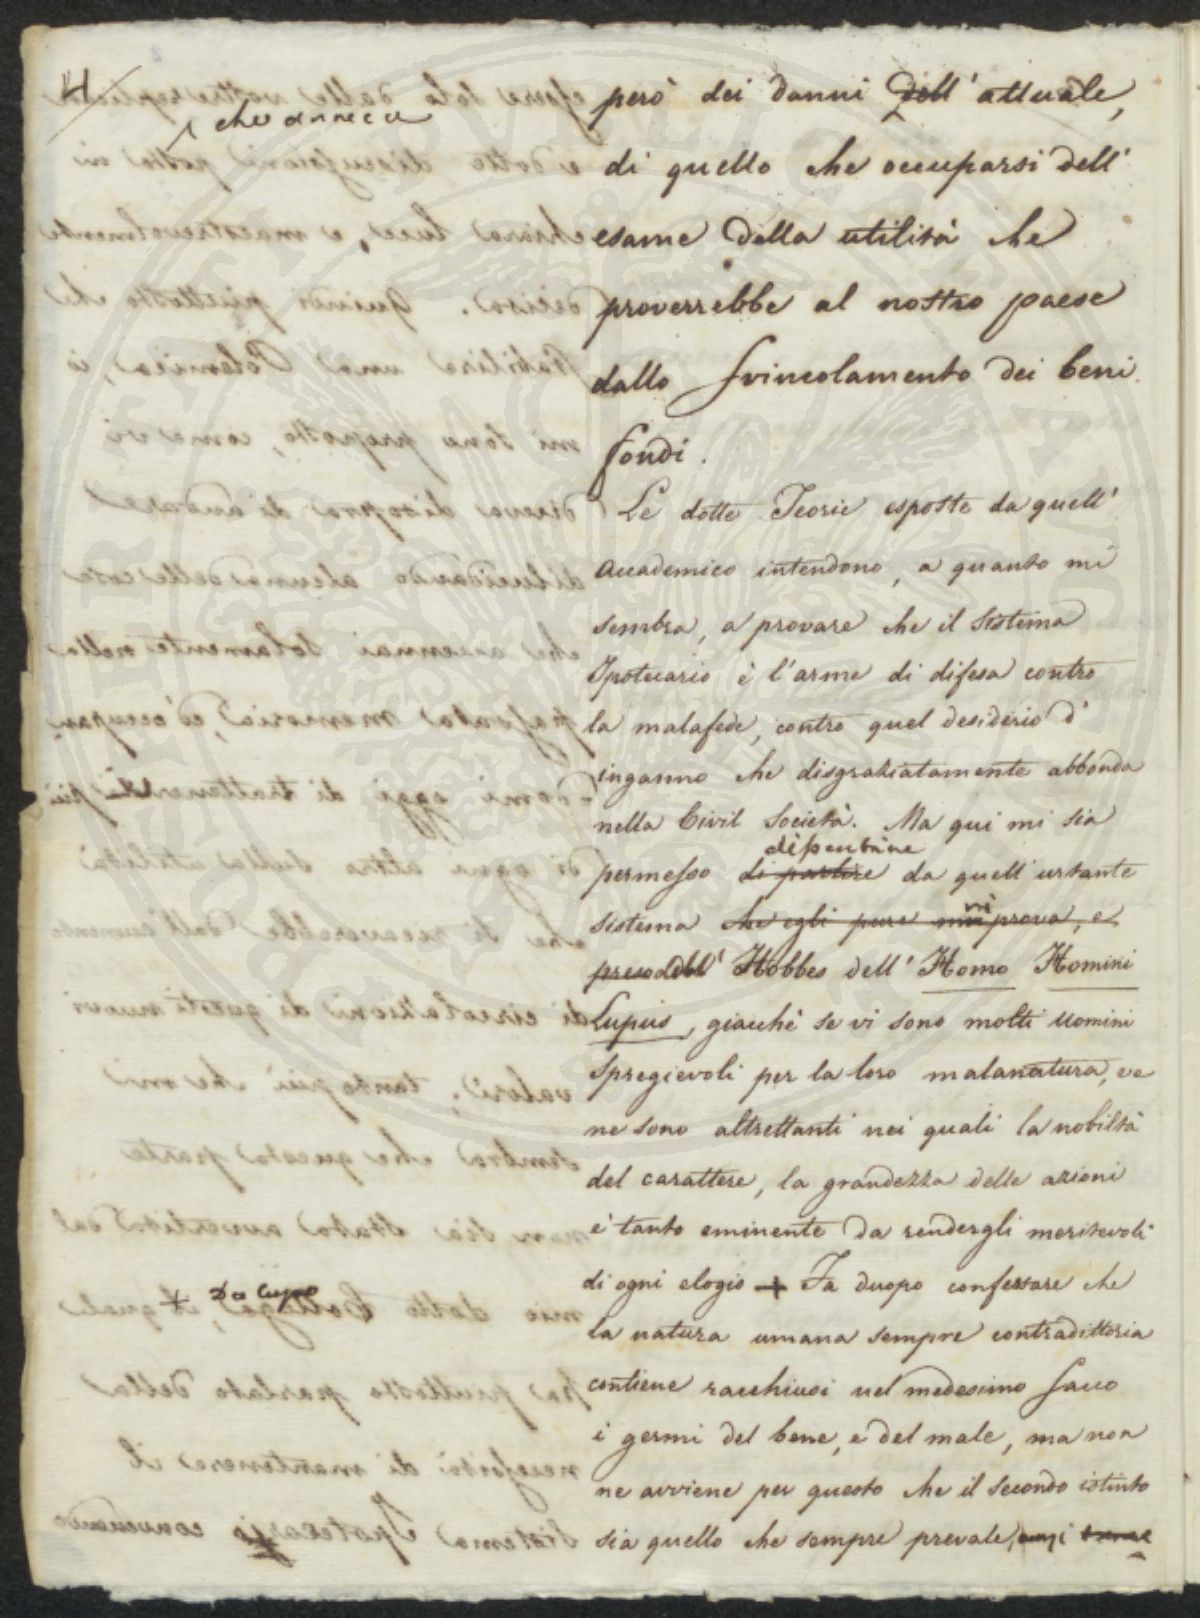 4
che arreca
però dei danni dell' attuale,
di quello che occuparsi dell'
esame della utilità che
proverrebbe al nostro paese
dallo svincolamento dei beni
fondi.
Le dotte Teorie esposte da quell'
Accademico intendono, a quanto mi
sembra, a provare che il Sistema
Ipotecario è l'arme di difesa contro
la malafede, contro quel desiderio d'
inganno che disgraziatamente abbonda
nella Civil Società. Ma qui mi sia
dipentire
permesso di partire da quell'urtante
sistema che egli pure ni prova, e
preso dell' Hobbes dell' Homo Homini
Lupus, giacchè se vi sono molti uomini
spregievoli per la loro malanatura, ve
ne sono altrettanti nei quali la nobiltà
del carattere, la grandezza delle azioni
è tanto eminente da rendergli meritevoli
di ogni elogio + Fa duopo confessare che
+ Da Capo
la natura umana sempre contradittoria
contiene racchiusi nel medesimo sacco
i germi del bene, e del male, ma non
ne avviene per questo che il secondo istinto
sia quello che sempre prevale, anzi